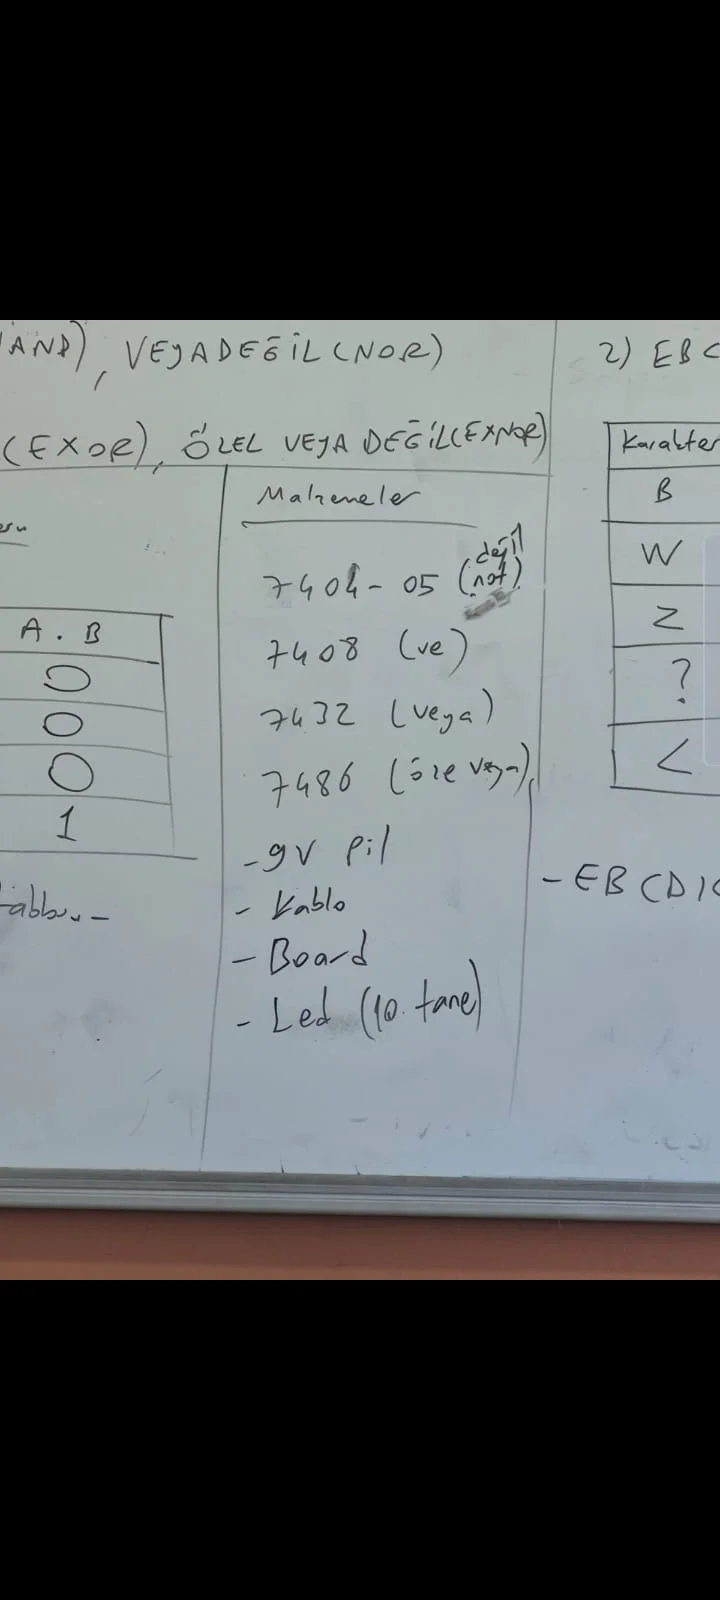 AND), VEYADEĞİL (NOR)
(EXOR), ÖZEL VEYA DEĞİL(EXNOR)
A . B
0
0
0
1
Malzemeler
7404-05 (değil not)
7408 (ve)
7432 (veya)
7486 (öze veya)
-9V Pil
- Kablo
- Board
- Led (10. tane)
2) EBC
Karakter
B
W
Z
?
<
- EBCDIC